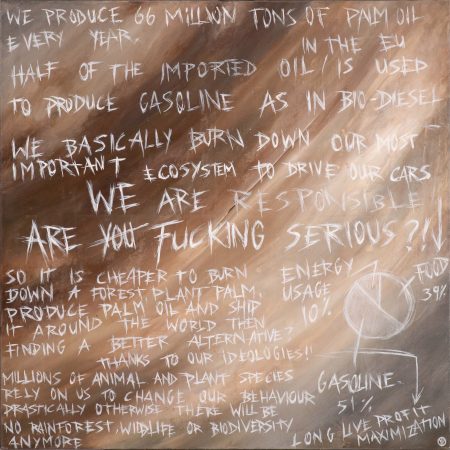 WE PRODUCE 66 MILLION TONS OF PALM OIL
EVERY YEAR.
IN THE EU
HALF OF THE IMPORTED OIL IS USED
TO PRODUCE GASOLINE AS IN BIO-DIESEL
WE BASICALLY BURN DOWN OUR MOST
IMPORTANT ECOSYSTEM TO DRIVE OUR CARS
WE ARE RESPONSIBLE
ARE YOU FUCKING SERIOUS?!!
SO IT IS CHEAPER TO BURN
DOWN A FOREST, PLANT PALM,
PRODUCE PALM OIL AND SHIP
IT AROUND THE WORLD THEN
FINDING A BETTER ALTERNATIVE?
THANKS TO OUR IDEOLOGIES!!
ENERGY
USAGE
10%
FOOD
39%
MILLIONS OF ANIMAL AND PLANT SPECIES
RELY ON US TO CHANGE OUR BEHAVIOUR
DRASTICALLY OTHERWISE THERE WILL BE
NO RAINFOREST, WILDLIFE OR BIODIVERSITY
ANYMORE
GASOLINE
51%
LONG LIVE PROFIT
MAXIMIZATION